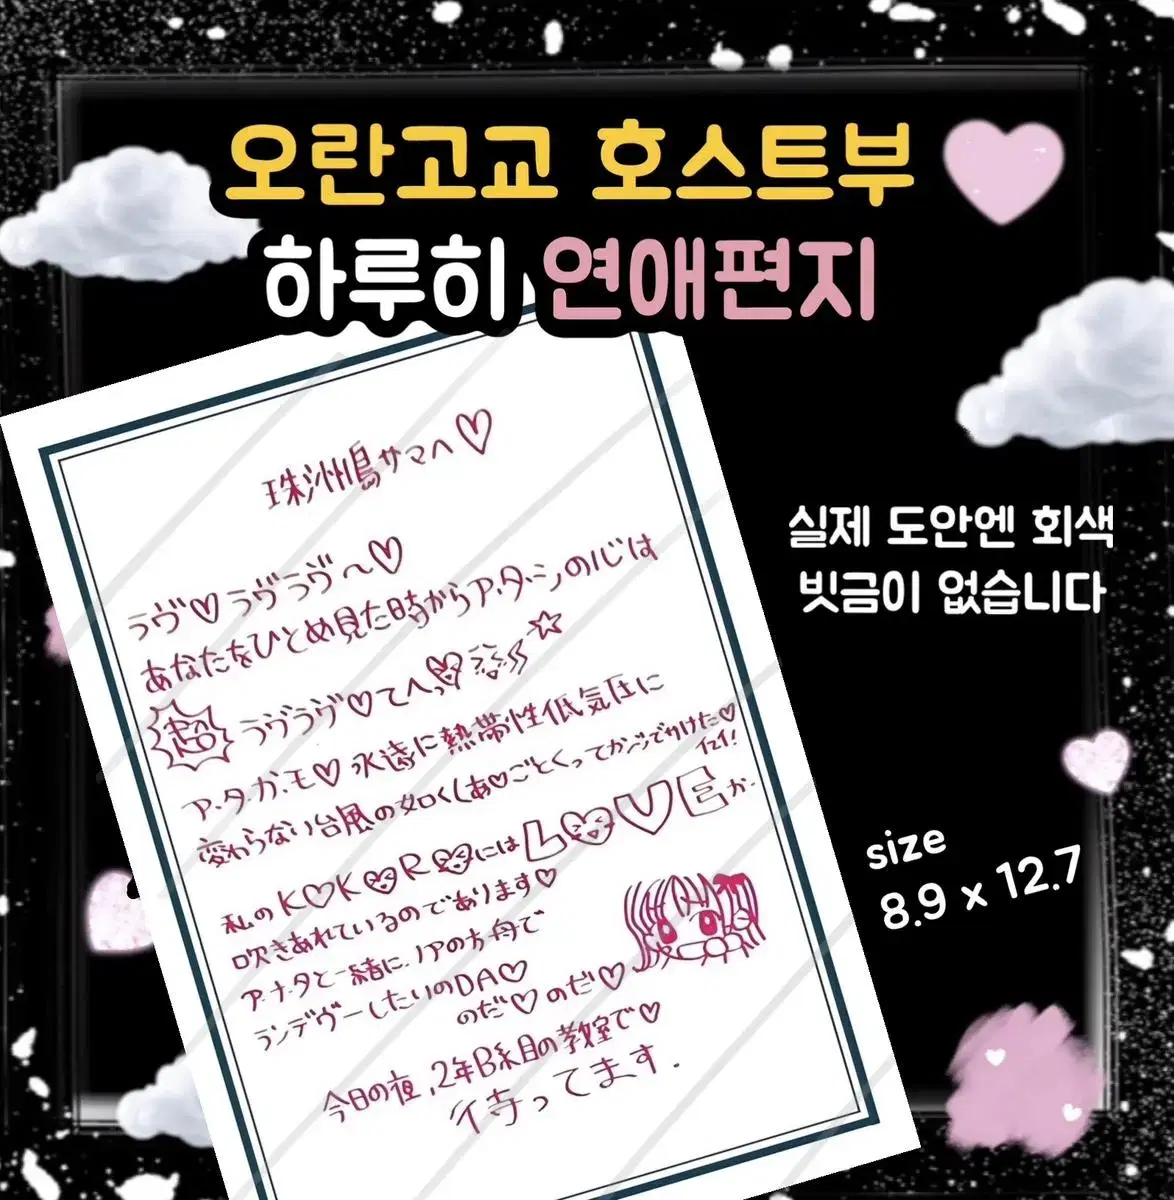 오란고교 호스트부
하루히 연애편지
실제 도안엔 회색
빗금이 없습니다
size
8.9 x 12.7
珠洲島サマへ♡
ラヴ♡ラヴラヴ〜♡
あなたをひとめ見た時からア・タ・シの心は
超 ラヴラヴ♡てへっ ☆
ア・タ・ガ・モ♡永遠に熱帯性低気圧に
変わらない台風の如くしあ♡ごとくってかんじでかけた♡
イエイ!
私のK♡K♡R♡にはLOVEが
吹きあれているのであります♡
ア・ナ・タと一緒に、ノアの方舟で
ランデヴーしたいのDA♡
のだ♡のだ♡
今日の夜,2年B組目の教室で♡
待ってます.